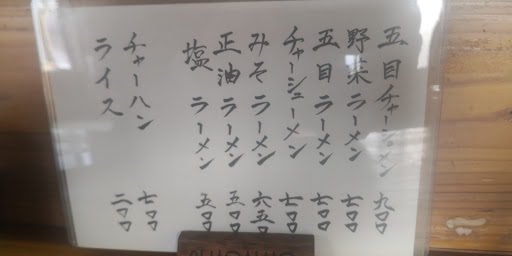 五目チャーシューメン 九〇〇
野菜ラーメン 七〇〇
五目ラーメン 七〇〇
チャーシューメン 七〇〇
みそラーメン 六五〇
正油ラーメン 五〇〇
塩ラーメン 五〇〇
チャーハン 七〇〇
ライス 二〇〇